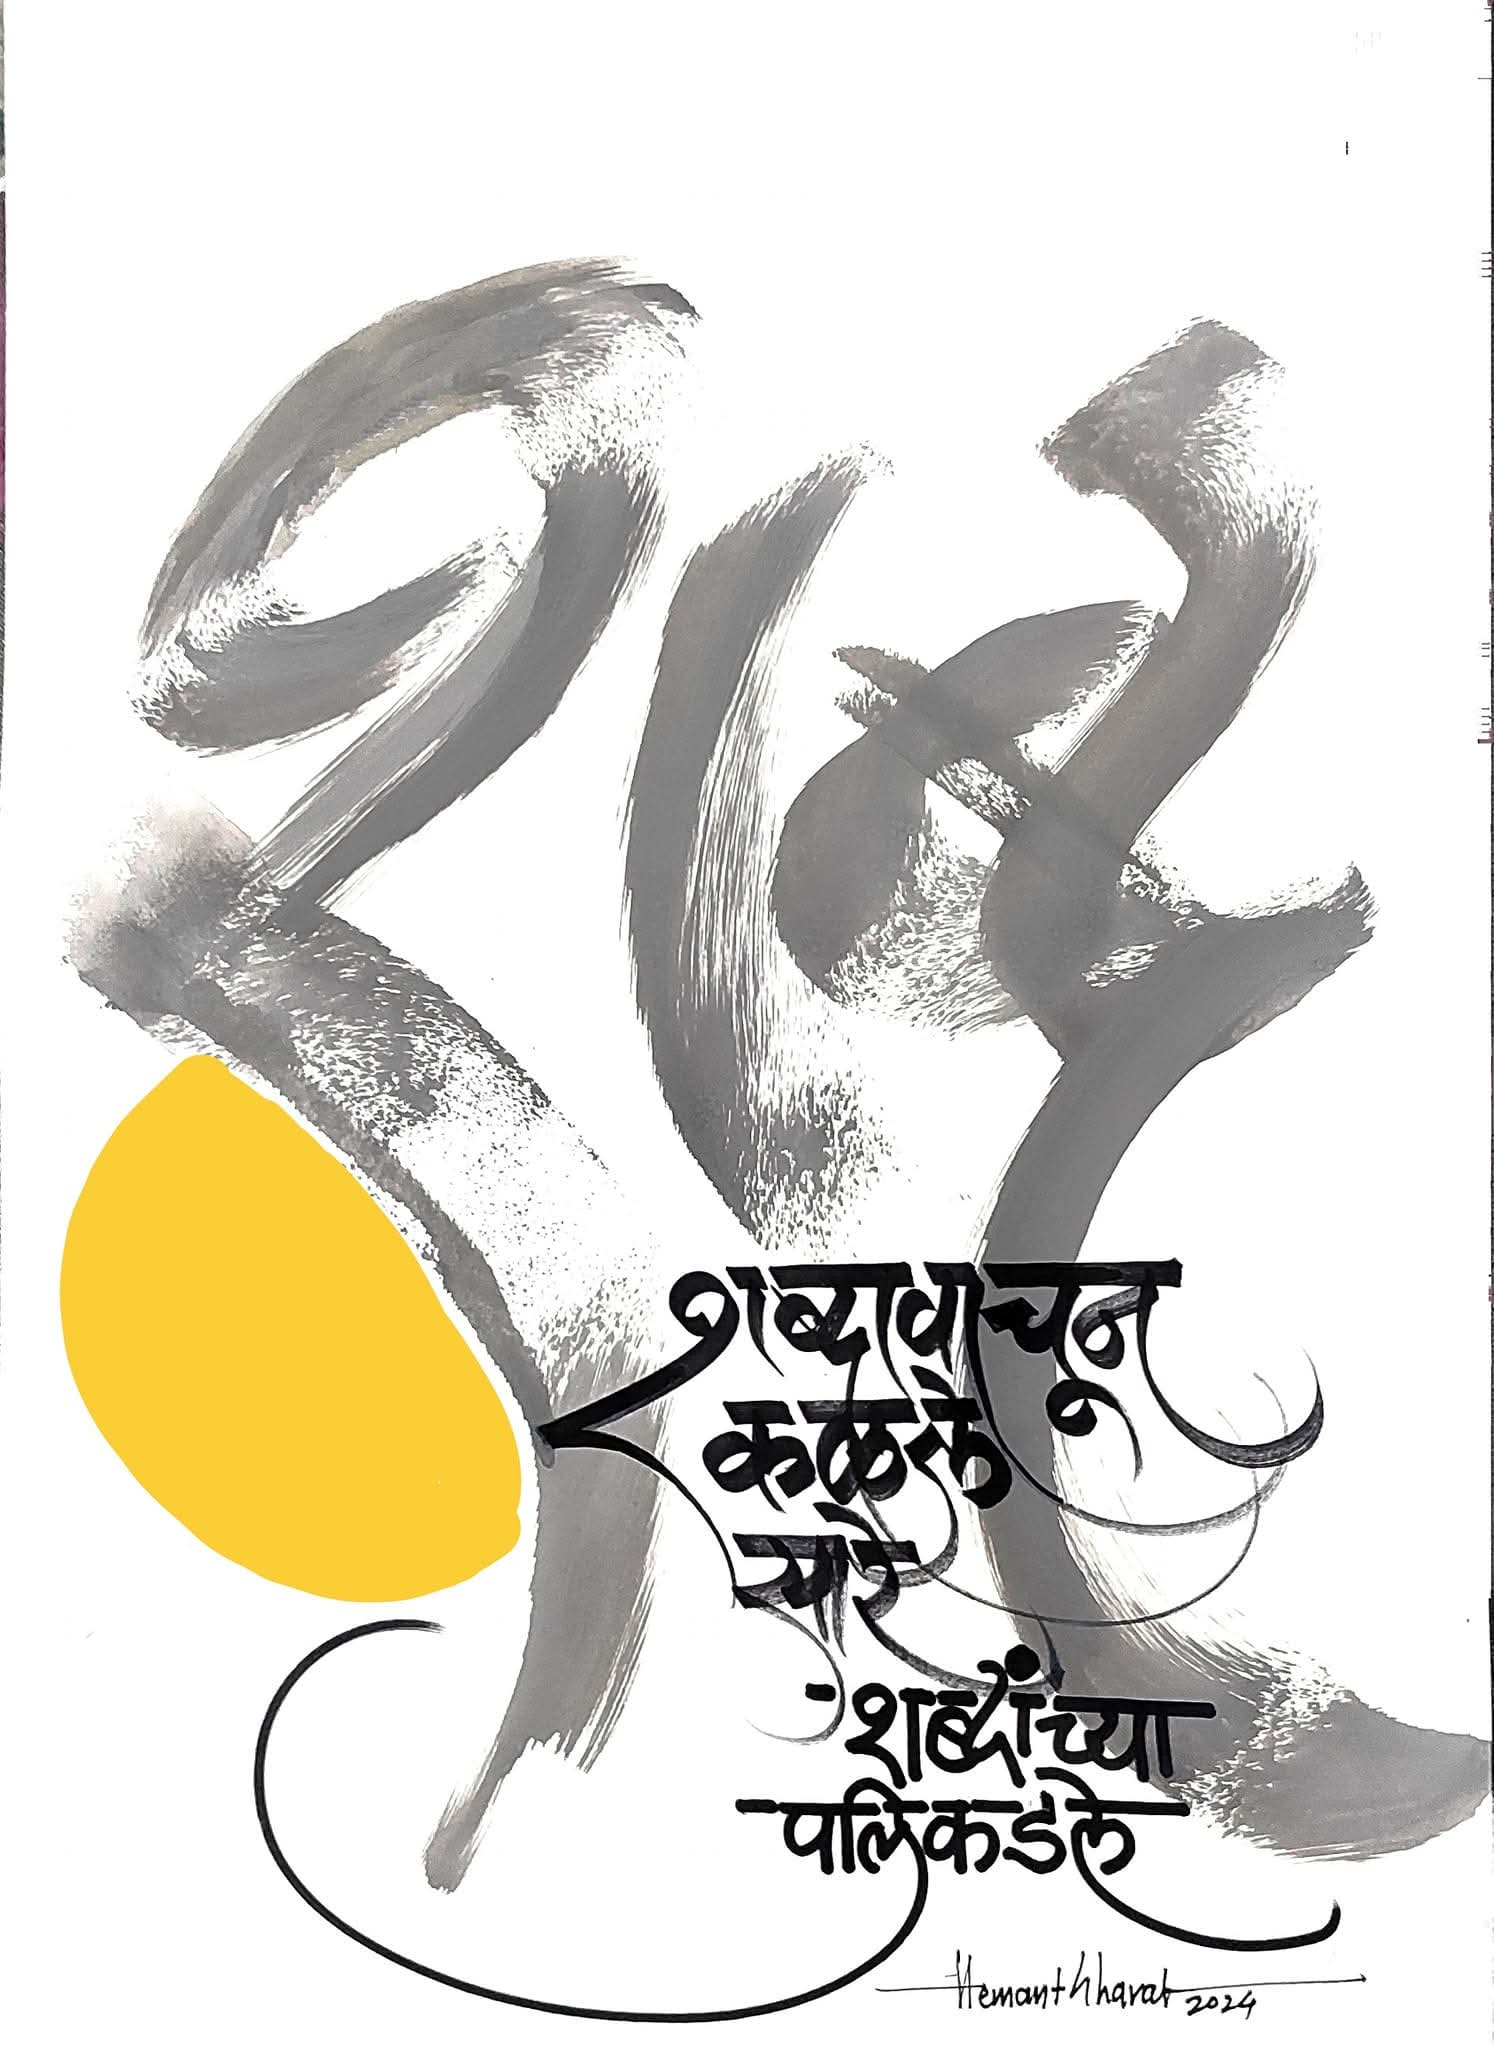 शब्द
शब्दावाचून
कळले
सारे
शब्दांच्या
पलिकडले
Hemant 2024